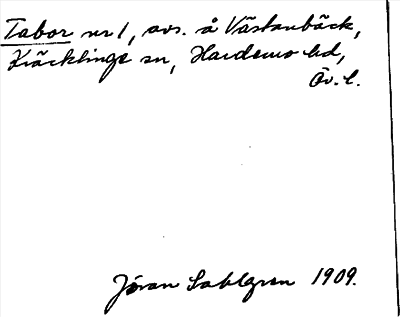 Tabor nr 1, avs. å Västanbäck,
Kräcklinge sn, Hardemo hd,
Ör. l.
Jöran Sahlgren 1909.